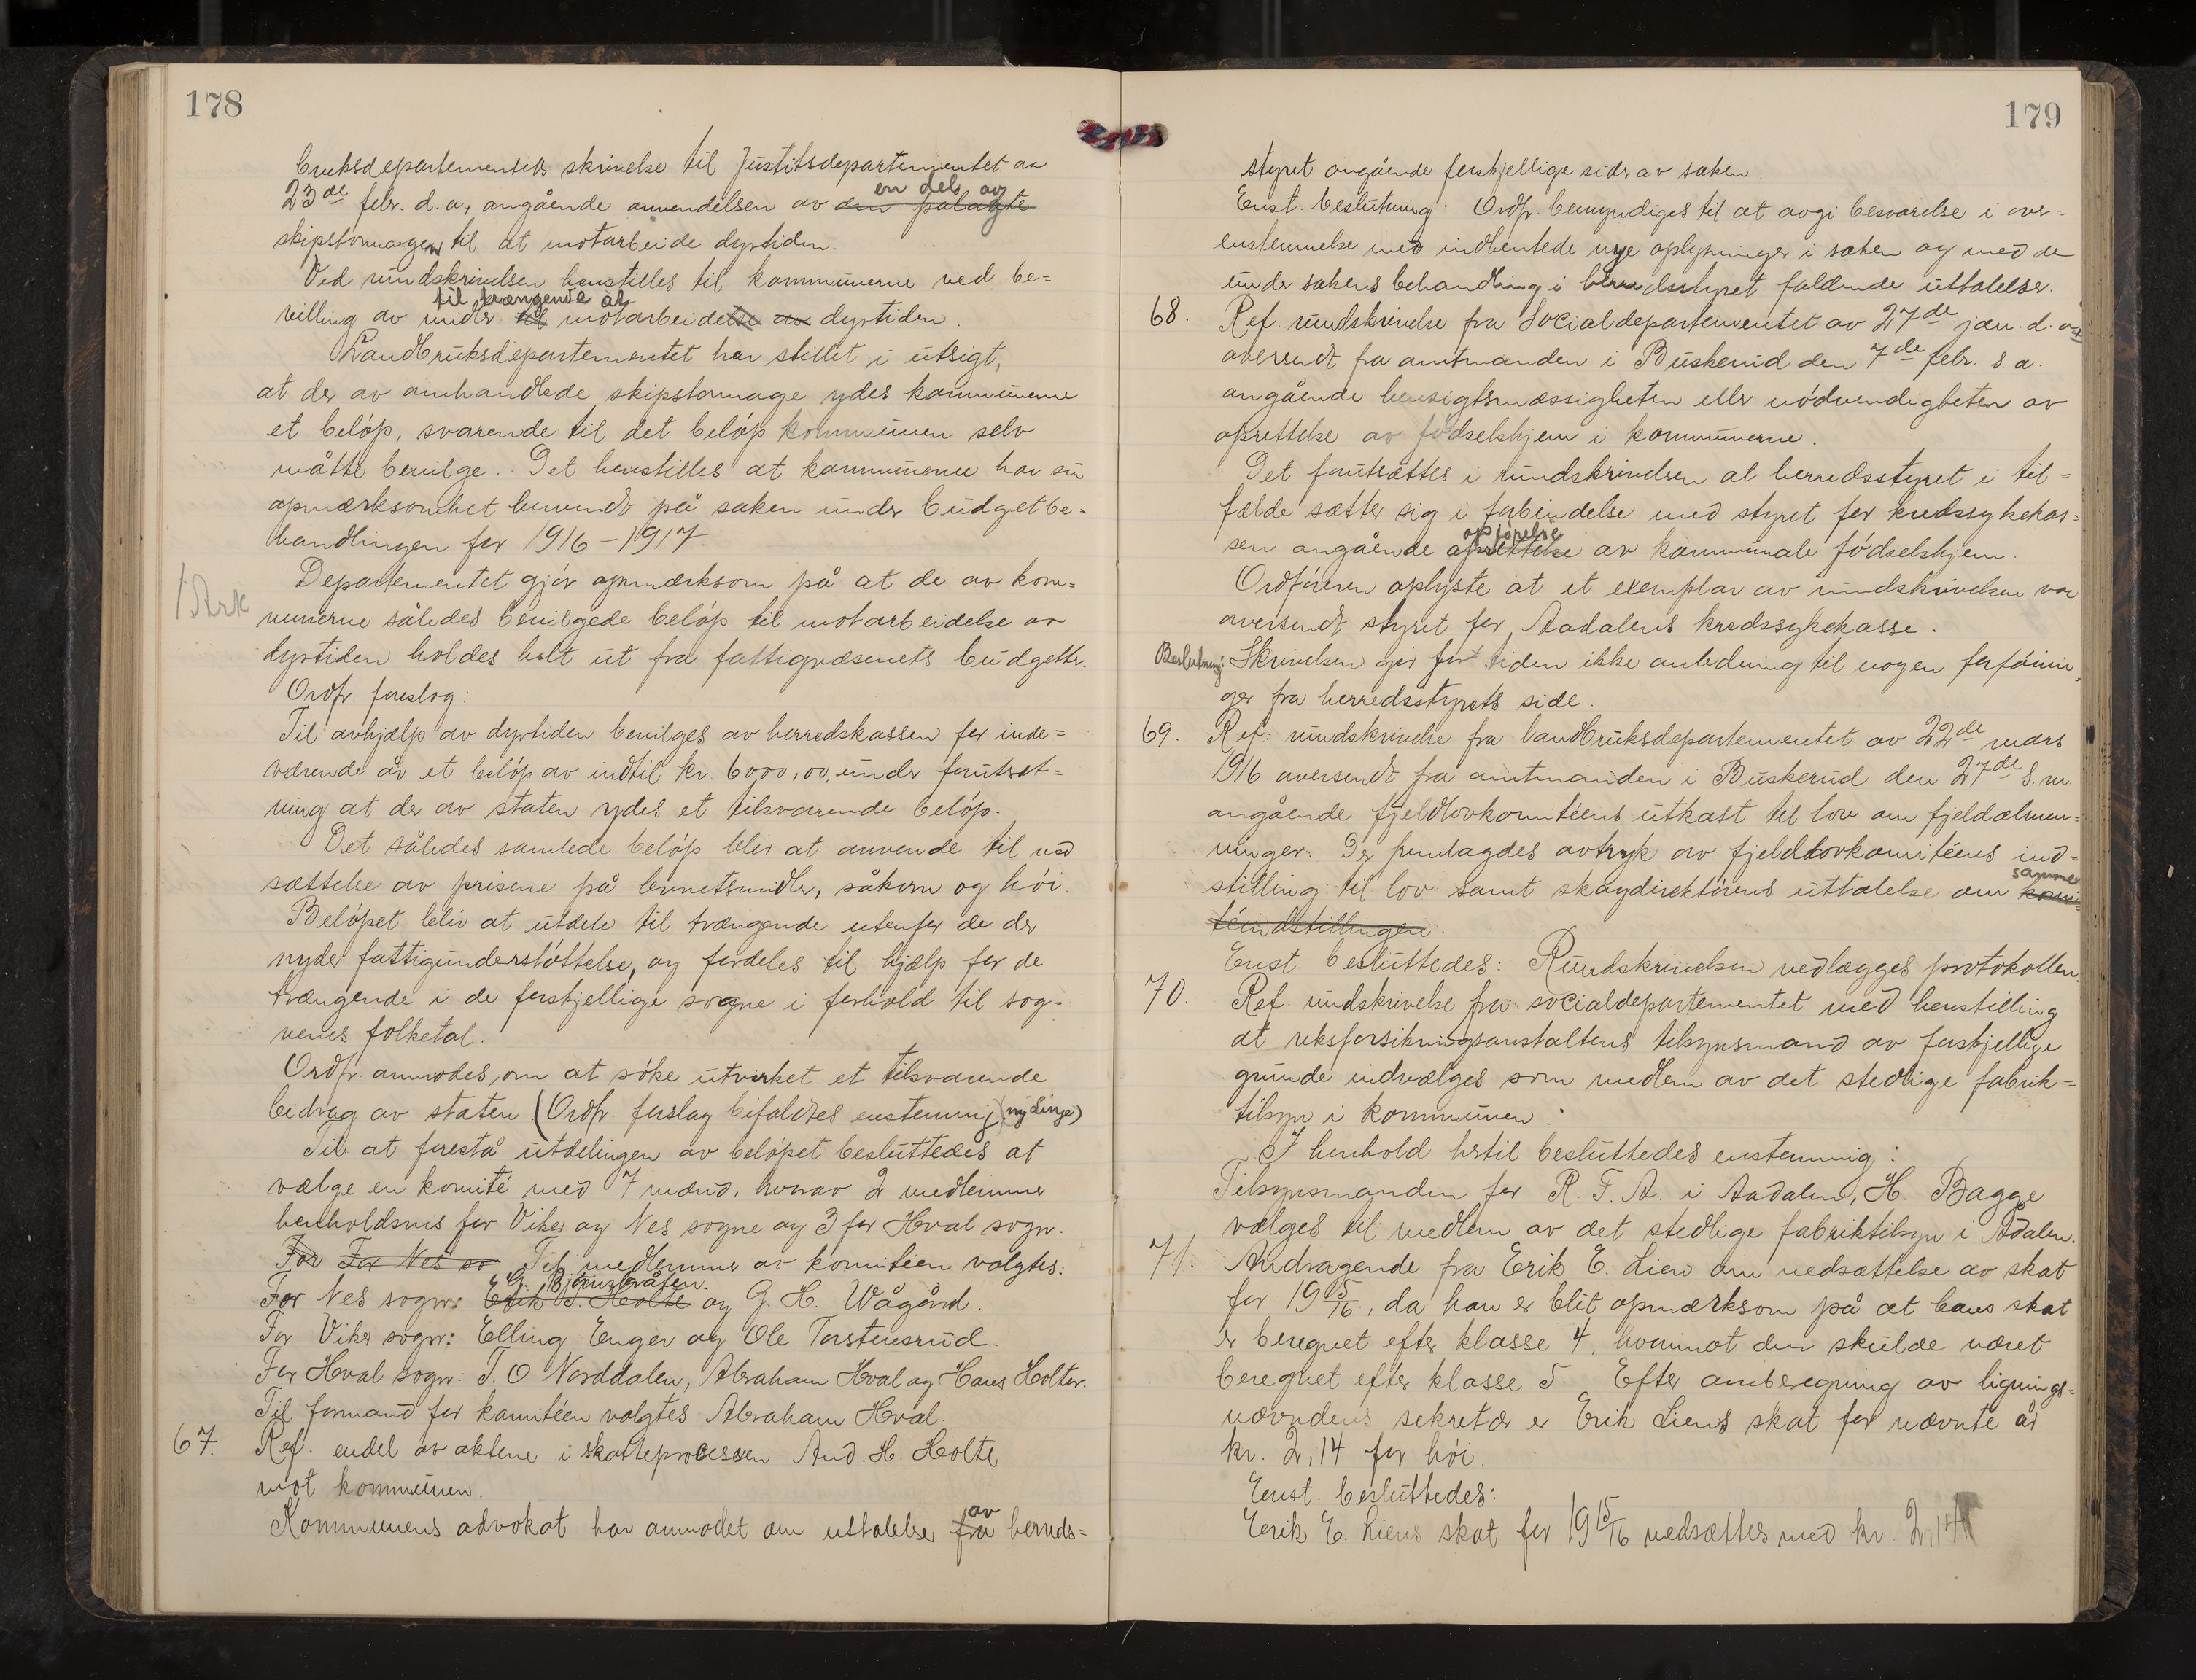 178
bruksdepartementets skrivelse til Justitsdepartementet av
23de febr. d.a, angående anvendelsen av den pålagte en del av
skipstonnagen til at motarbeide dyrtiden.
Ved rundskrivelsen henstilles til kommunerne ved be=
villing av midler til motarbeidelse av dyrtiden. til trængende at
Landbruksdepartementet har stillet i utsigt,
at der av omhandlede skipstonnage ydes kommunerne
et beløp, svarende til det beløp kommunen selv
måtte bevilge. Det henstilles at kommunerne har sin
opmærksomhet henvendt på saken under budgetbe-
handlingen for 1916-1917.
Departementet gjør opmærksom på at de av kom=
munerne således bevilgede beløp til motarbeidelse av
dyrtiden holdes helt ut fra fattigvæsenets budgetter.
1 Ark
Ordfr. foreslog:
Til avhjælp av dyrtiden bevilges av herredskassen for inde=
værende år et beløp av indtil kr. 6000,00, under forutsæt=
ning at der av staten ydes et tilsvarende beløp.
Det således samlede beløp blir at anvende til ned
sættelse av prisene på levnetsmidler, såkorn og høi.
Beløpet blir at utdele til trængende utenfor de der
nyder fattigunderstøttelse, og fordeles til hjælp for de
trængende i de forskjellige sogne i forhold til sog-
nenes folketal.
Ordfr. anmodes, om at søke utvirket et tilsvarende
bidrag av staten (Ordfr. forslag bifaldtes enstemmig) (ny Linje)
Til at forestå utdelingen av beløpet besluttedes at
vælge en komité med 7 mænd, hvorav 2 medlemmer
henholdsvis for Viker og Nes sogne og 3 for Hval sogn.
For For Nes so Til medlemmer av komitéen valgtes:
For Nes sogn: Erik T. Holte G. Bjørnebråten og G. H. Wågård.
For Viker sogn: Elling Enger og Ole Torstensrud.
For Hval sogn: T. O. Norddalen, Abraham Hval og Hans Holter.
Til formand for komitéen valgtes Abraham Hval.
67. Ref. endel av aktene i skatteprocessen And. H. Holte
mot kommunen.
Kommunens advokat har anmodet om uttalelse fra av herreds=
179
styret angående forskjellige sider av saken.
Enst. beslutning: Ordfr. bemyndiges til at avgi besvarelse i over=
enstemmelse med indhentede nye oplysninger i saken og med de
under sakens behandling i herredsstyret faldende uttalelser.
68. Ref. rundskrivelse fra Socialdepartementet av 27de jan. d. a,
oversendt fra amtmanden i Buskerud den 7de febr. s. a.
angående hensigtsmæssigheten eller nødvendigheten av
oprettelse av fødselshjem i kommunerne.
Det forutsættes i rundskrivelsen at herredsstyret i til=
fælde sætter sig i forbindelse med styret for kredssykekas=
sen angående oprettelse opførelse av kommunale fødselshjem.
Ordføreren oplyste at et exemplar av rundskrivelsen var
oversendt styret for Aadalens kredssykekasse.
Beslutning: Skrivelsen gir for tiden ikke anledning til nogen forføinin,
ger fra herredsstyrets side.
69. Ref. rundskrivelse fra landbruksdepartementet av 22de mars
1916 oversendt fra amtmanden i Buskerud den 27de s.m.
angående fjeldlovkomitéens utkast til lov om fjeldalmen=
ninger. Der fremlagdes avtryk av fjeldlovkomitéens ind=
stilling til lov samt skogdirektørens uttalelse om komi= samme
téindstillingen.
Enst. besluttedes: Rundskrivelsen vedlægges protokollen.
70. Ref. rundskrivelse fra socialdepartementet med henstilling
at riksforsikringsanstaltens tilsynsmand av forskjellige
grunde indvælges som medlem av det stedlige fabrik=
tilsyn i kommunen.
I henhold hertil besluttedes enstemmig:
Tilsynsmanden for R. F. A. i Aadalen, H. Bagge
vælges til medlem av det stedlige fabriktilsyn i Ådalen.
71. Andragende fra Erik E. Lien om nedsættelse av skat
for 1915/16, da han er blit opmærksom på at hans skat
er beregnet efter klasse 4, hvorimot den skulde været
beregnet efter klasse 5. Efter omberegning av lignings=
nævndens sekretær er Erik Liens skat for nævnte år
kr. 2,14 for høi.
Enst. besluttedes:
Erik E. Liens skat for 1915/16 nedsættes med kr. 2,14